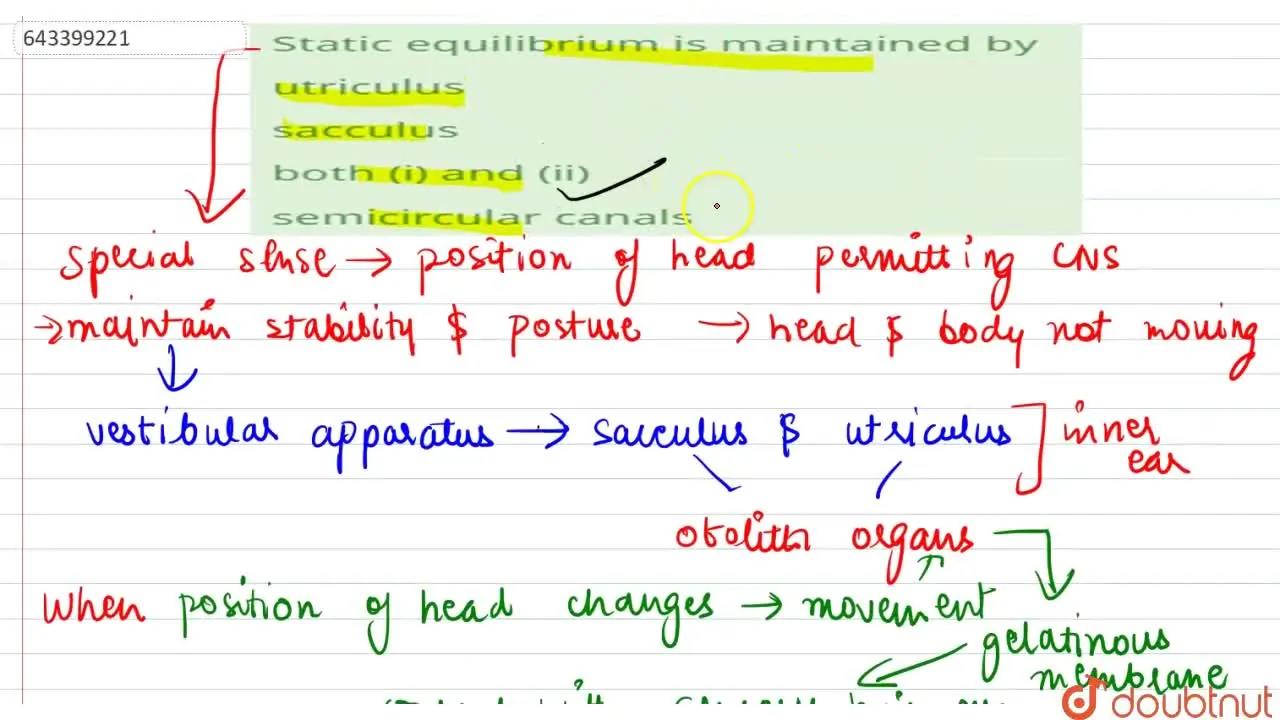 643399221
Static equilibrium is maintained by
utriculus
sacculus
both (i) and (ii)
semicircular canals
special sense → position of head permitting CNS
→ maintain stability & posture → head & body not moving
vestibular apparatus → sacculus & utriculus ] inner ear
otolith organs
When position of head changes → movement
gelatinous
membrane
doubtnut